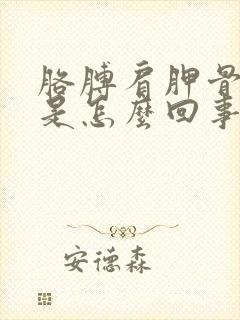 胳膊肩胛骨
是怎麼回事
安德森